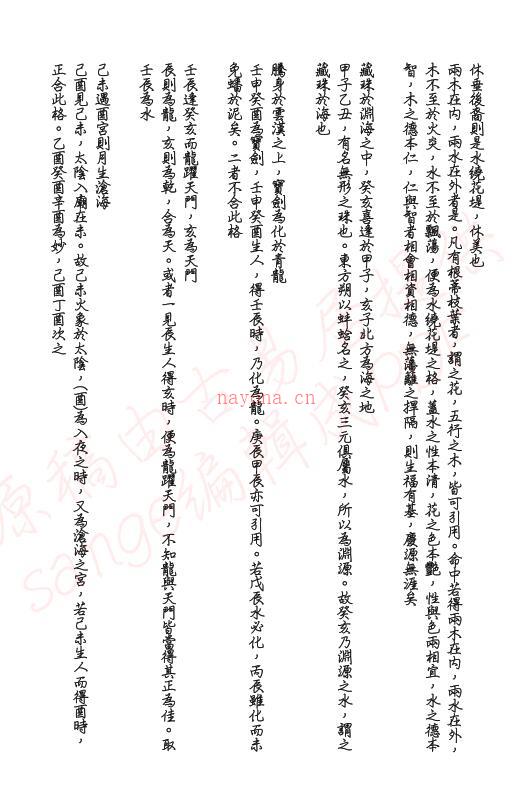 休垂後裔則是水繞花堤，休美也
兩木在內，兩水在外者是。凡有根蒂枝葉者，謂之花，五行之木，皆可引用。命中若得兩木在內，兩水在外，
木不至於火炎，水不至於飄蕩，便為水繞花堤之格，蓋水之性本清，花之色本艷，性與色兩相宜，水之德本
智，木之德本仁，仁與智者相會相資相德，無藩籬之捍隔，則生福有基，慶源無涯矣
藏珠於淵海之中，癸亥喜逢於甲子，亥子北方為海之地
甲子乙丑，有名無形之珠也。東方朔以蚌蛤名之，癸亥三元俱屬水，所以為淵源。故癸亥乃淵源之水，謂之
藏珠於海也
騰身於雲漢之上，寶劍為化於青龍
壬申癸酉為寶劍，壬申癸酉生人，得壬辰時，乃化為龍。庚辰甲辰亦可引用。若戊辰水必化，丙辰雖化而未
免蟠於泥矣。二者不合此格
壬辰逢癸亥而龍躍天門，亥為天門
辰則為龍，亥則為乾，合為天。或者一見辰生人得亥時，便為龍躍天門，不知龍與天門皆當得其正為佳。取
壬辰為水
己未遇酉宮則月生滄海
己酉見己未，太陰入廟在未。故己未火象於太陰，(酉)為入夜之時，又為滄海之宮，若己未生人而得酉時，
正合此格。乙酉癸酉辛酉為妙，己酉丁酉次之
nayona.cn
原稿由古易居提供
sange編輯成pdf